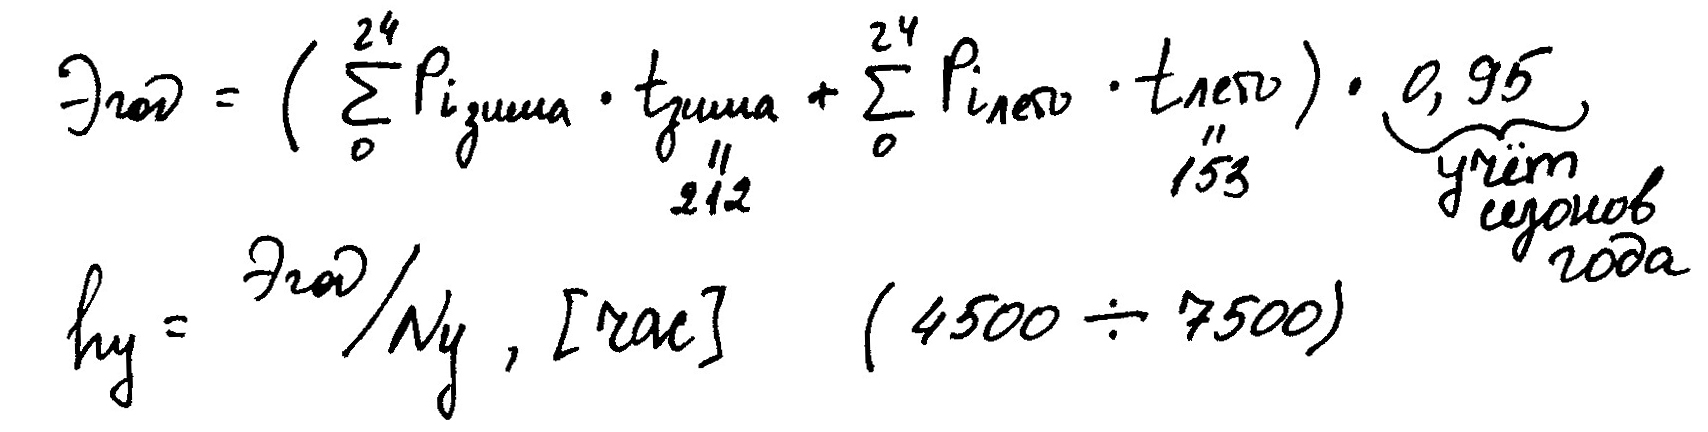 Эгод = ( 24 Σ 0 Pi зима · t зима + 24 Σ 0 Pi лето · t лето ) · 0,95
"
212
"
153
учёт
сезонов
года
hy = Эгод / Ny , [час] (4500 ÷ 7500)